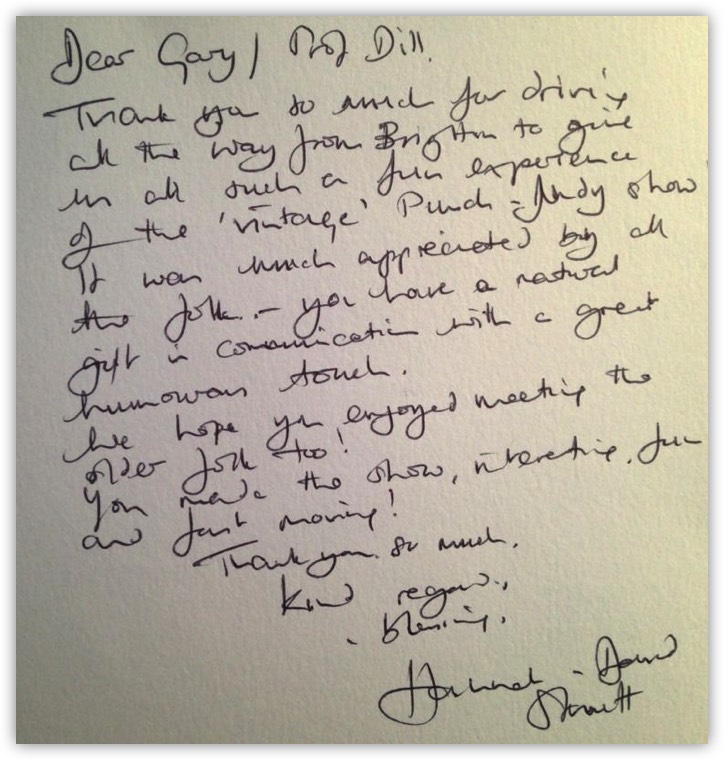 Dear Gary / Prof Dill.
Thank you so much for driving
all the way from Brighton to give
us all such a fun experience
of the 'vintage' Punch - Judy show
It was much appreciated by all
the folk. - you have a natural
gift in communication with a great
humorous touch.
We hope you enjoyed meeting the
older folk too!
You made the show, interesting, fun
and fast moving!
Thank you so much.
Kind regards,
- blessings,
Hannah - David